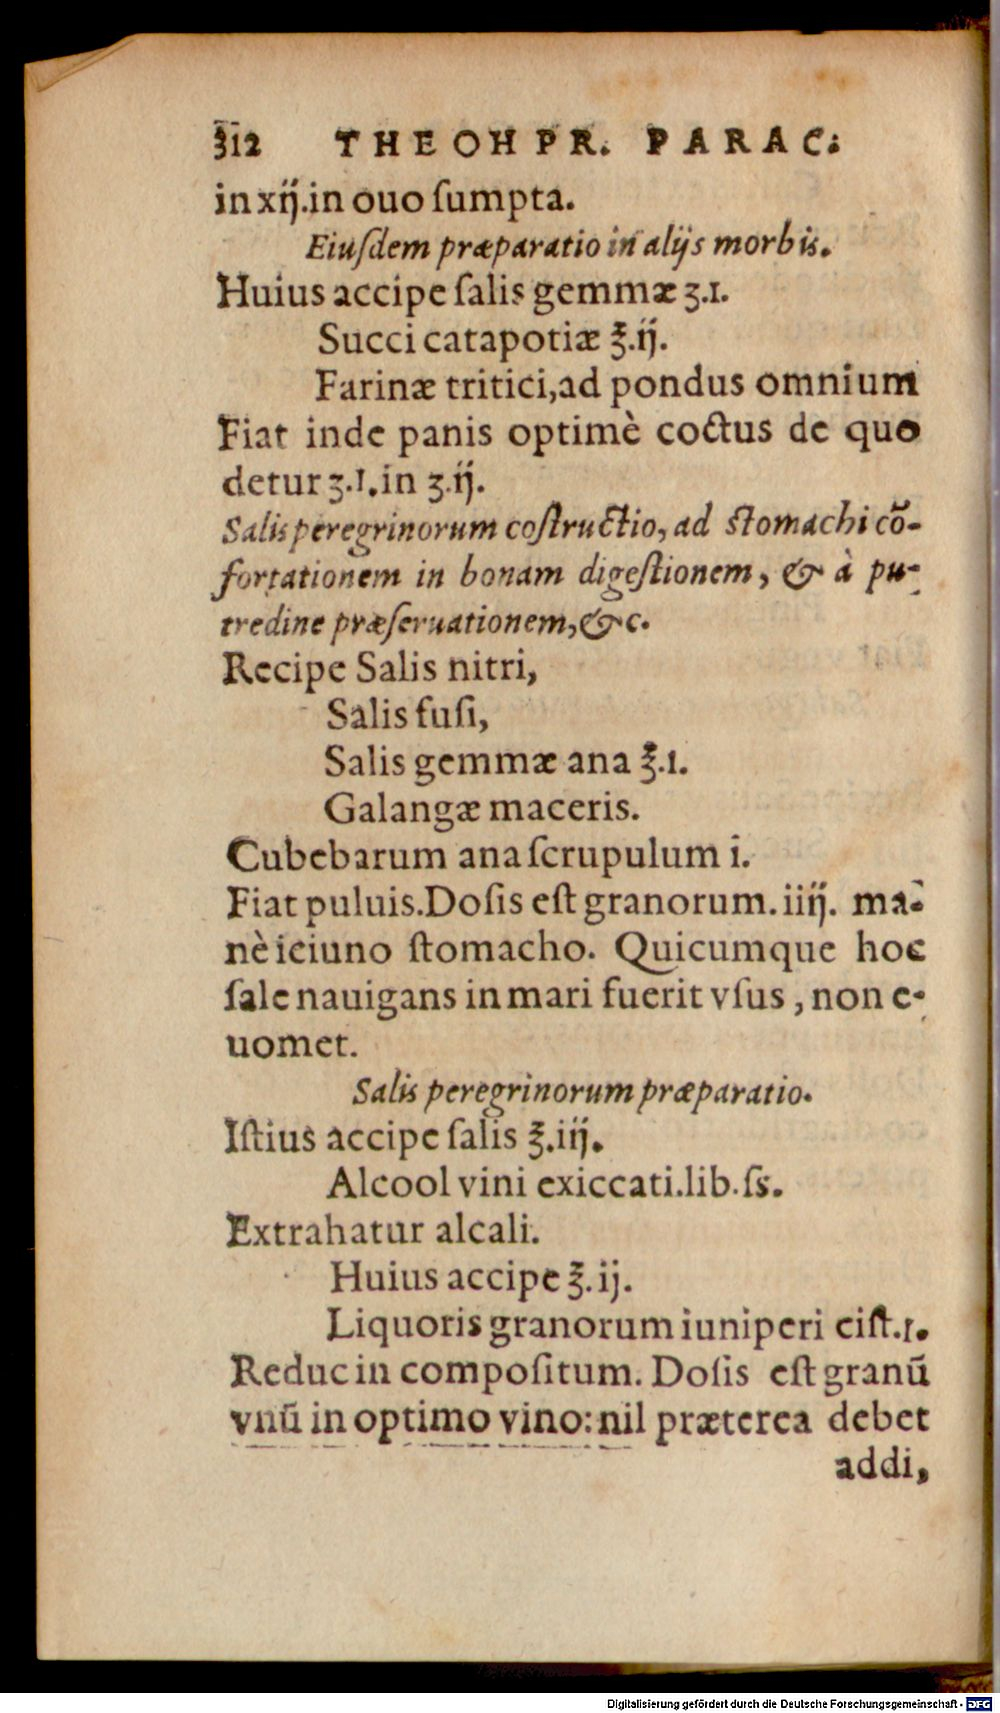 312 THEOHPR. PARAC:
in xij. in ouo ſumpta.
Eiuſdem præparatio in alijs morbis.
Huius accipe ſalis gemmæ ʒ.1.
Succi catapotiæ ℥.ij.
Farinæ tritici, ad pondus omnium
Fiat inde panis optimè coctus de quo
detur ʒ.1. in ʒ.ij.
Salis peregrinorum coſtructio, ad ſtomachi cõ-
fortationem in bonam digeſtionem, & à pu-
tredine præſeruationem, &c.
Recipe Salis nitri,
Salis fuſi,
Salis gemmæ ana ℥.1.
Galangæ maceris.
Cubebarum ana ſcrupulum i.
Fiat puluis. Doſis eſt granorum. iiij. ma-
nè ieiuno ſtomacho. Quicumque hoc
ſale nauigans in mari fuerit vſus, non e-
uomet.
Salis peregrinorum præparatio.
Iſtius accipe ſalis ℥.iij.
Alcool vini exiccati. lib. ſs.
Extrahatur alcali.
Huius accipe ℥. ij.
Liquoris granorum iuniperi ciſt. 1.
Reduc in compoſitum. Doſis eſt granũ
vnũ in optimo vino: nil præterea debet
addi,
Digitalisierung gefördert durch die Deutsche Forschungsgemeinschaft - DFG